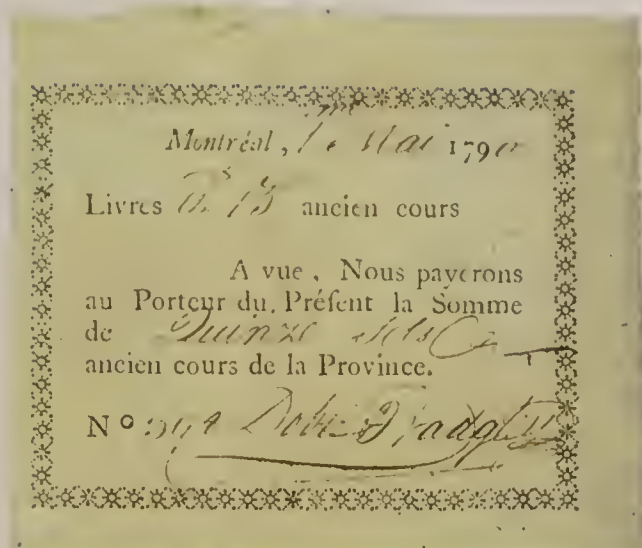 Montréal, 1 Mai 1790
Livres 15 ancien cours
A vue, Nous payerons
au Porteur du Préſent la Somme
de Quinze Sols
ancien cours de la Province.
Nº Dobie & Badgley